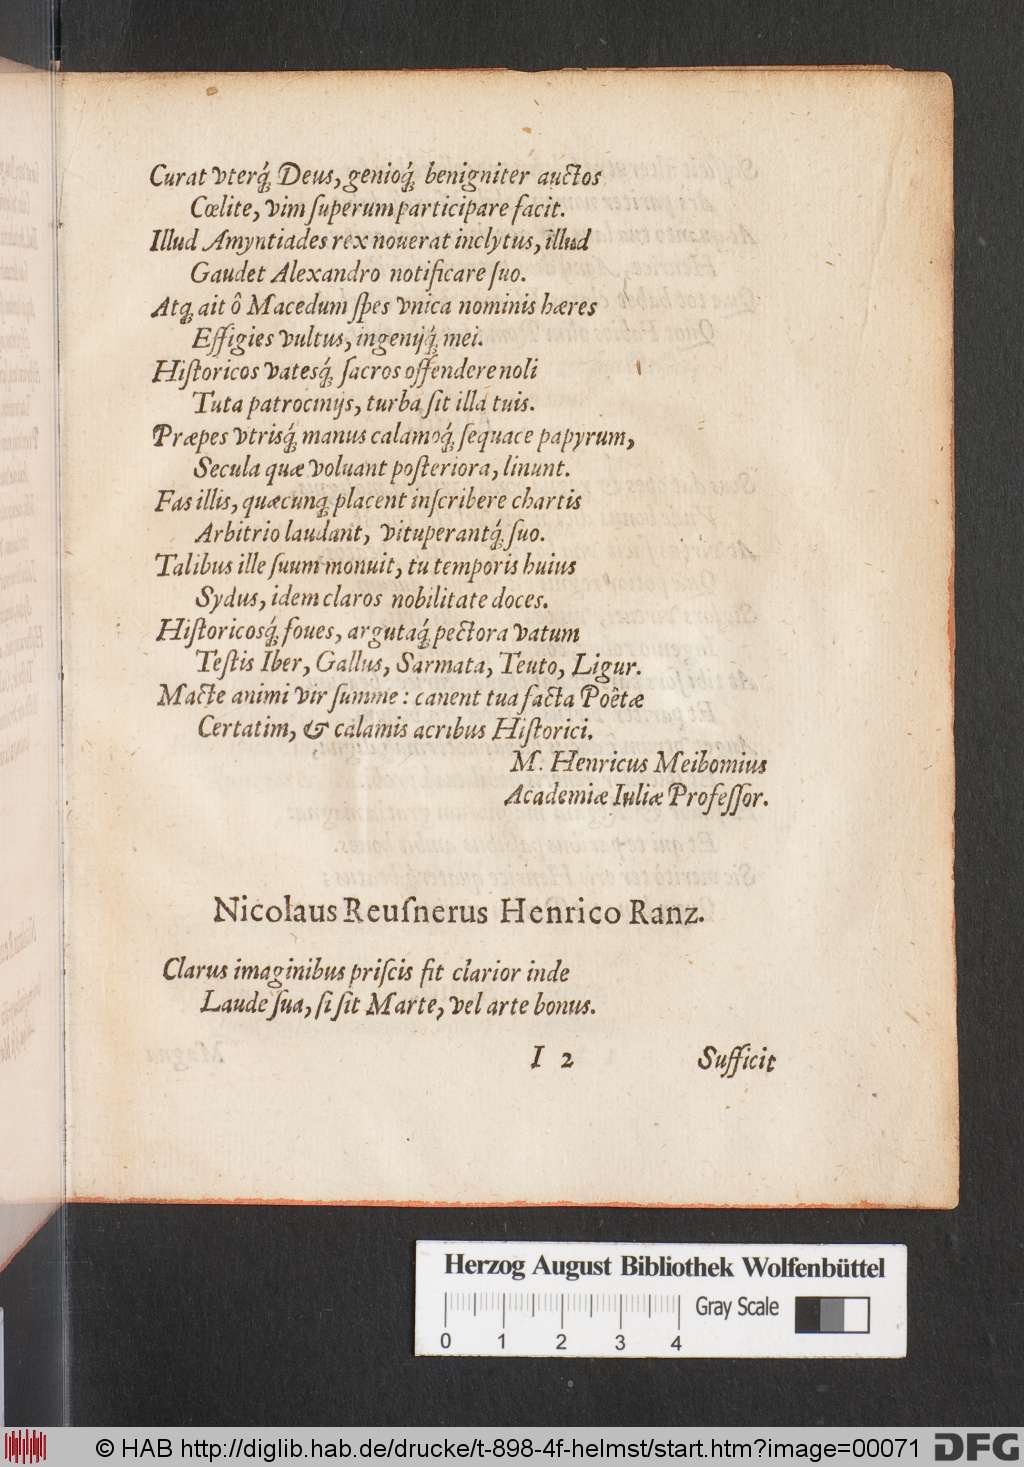 Curat vterq́; Deus, genioq́; benigniter auctos
Cœlite, vim ſuperum participare facit.
Illud Amyntiades rex nouerat inclytus, illud
Gaudet Alexandro notificare ſuo.
Atq; ait ô Macedum ſpes vnica nominis hæres
Effigies vultus, ingenijq́; mei.
Hiſtoricos vatesq́; ſacros offendere noli
Tuta patrocinijs, turba ſit illa tuis.
Præpes vtrisq́; manus calamoq́; ſequace papyrum,
Secula quæ voluant poſteriora, linunt.
Fas illis, quæcunq; placent inſcribere chartis
Arbitrio laudant, vituperantq́; ſuo.
Talibus ille ſuum monuit, tu temporis huius
Sydus, idem claros nobilitate doces.
Hiſtoricosq́; foues, argutaq́; pectora vatum
Teſtis Iber, Gallus, Sarmata, Teuto, Ligur.
Macte animi vir ſumme: canent tua facta Poëtæ
Certatim, & calamis acribus Hiſtorici.
M. Henricus Meibomius
Academiæ Iuliæ Profeſſor.
Nicolaus Reuſnerus Henrico Ranz.
Clarus imaginibus priſcis fit clarior inde
Laude ſua, ſi ſit Marte, vel arte bonus.
I 2 Sufficit
Herzog August Bibliothek Wolfenbüttel
Gray Scale
0 1 2 3 4
© HAB http://diglib.hab.de/drucke/t-898-4f-helmst/start.htm?image=00071 DFG